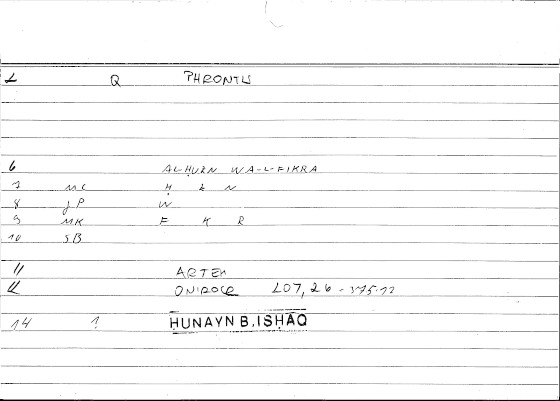 L Q PHRONTIS
6 ALḤUZN WA-L-FIKRA
7 MC Ḥ Z N
8 JP W
9 MK F K R
10 SB
11 ARTEM
12 ONIROCR 207,26 - 375.12
14 1 ḤUNAYN B.ISḤĀQ